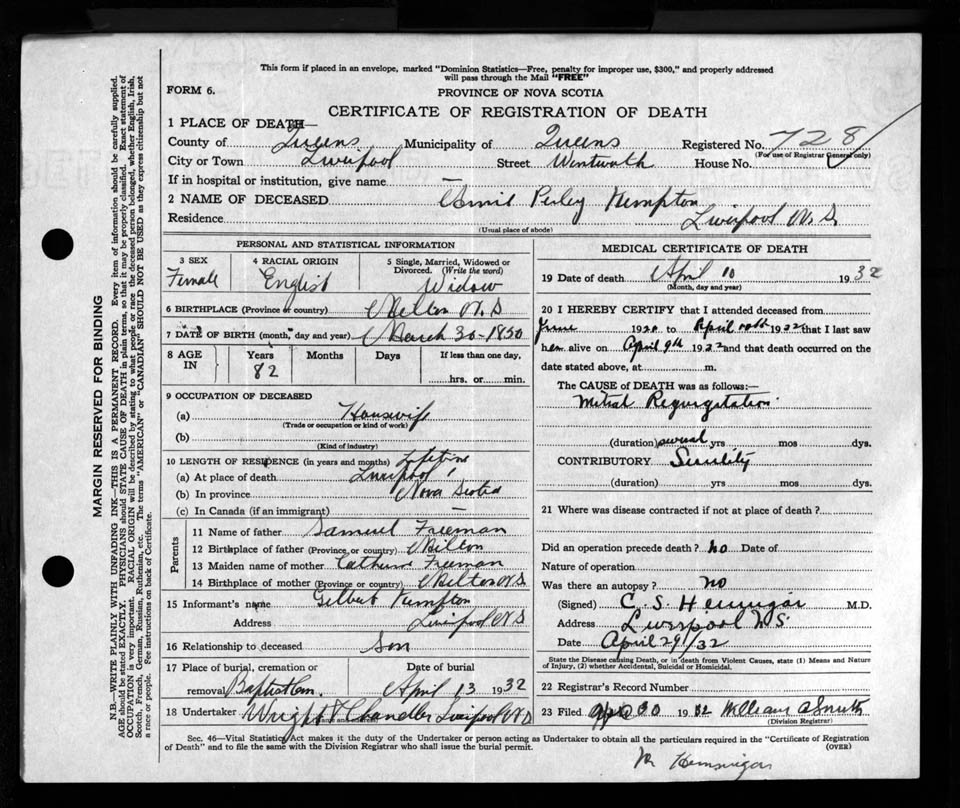 This form if placed in an envelope, marked "Dominion Statistics—Free, penalty for improper use, $300," and properly addressed
will pass through the Mail "FREE"
FORM 6.
PROVINCE OF NOVA SCOTIA
CERTIFICATE OF REGISTRATION OF DEATH
1 PLACE OF DEATH—
County of Queens Municipality of Queens Registered No. 728
(For use of Registrar General only)
City or Town Liverpool Street Wentworth House No.
If in hospital or institution, give name —
2 NAME OF DECEASED Perley Kempton
Residence Liverpool N.S.
(Usual place of abode)
PERSONAL AND STATISTICAL INFORMATION
3 SEX Female
4 RACIAL ORIGIN English
5 Single, Married, Widowed or Divorced. (Write the word) Widow
6 BIRTHPLACE (Province or country) Milton N.S
7 DATE OF BIRTH (month, day and year) March 30-1850
8 AGE IN Years 82 Months Days If less than one day, hrs. or min.
9 OCCUPATION OF DECEASED
(a) Houswife
(Trade or occupation or kind of work)
(b)
(Kind of industry)
10 LENGTH OF RESIDENCE (in years and months) Lifetime
(a) At place of death Liverpool
(b) In province Nova Scotia
(c) In Canada (if an immigrant) —
Parents
11 Name of father Samuel Freeman
12 Birthplace of father (Province or country) Milton
13 Maiden name of mother Catherine Freeman
14 Birthplace of mother (Province or country) Milton N.S
15 Informant's name Gilbert Kempton
Address Liverpool N.S
16 Relationship to deceased Son
17 Place of burial, cremation or removal Baptist Cem. Date of burial April 13 1932
18 Undertaker Wright & Chandler Liverpool N.S
(Name and address)
MEDICAL CERTIFICATE OF DEATH
19 Date of death April 10 1932
(Month, day and year)
20 I HEREBY CERTIFY that I attended deceased from
June 1920 to April 1932 that I last saw
her alive on April 9th 1932 and that death occurred on the
date stated above, at m.
The CAUSE of DEATH was as follows:—
Mitral Regurgitation
(duration) several yrs mos dys.
CONTRIBUTORY Senility
(duration) yrs mos dys.
21 Where was disease contracted if not at place of death?
Did an operation precede death? no Date of
Nature of operation
Was there an autopsy? no
(Signed) C. S. Hennigar M.D.
Address Liverpool N.S.
Date April 29/32
State the Disease causing Death, or in death from Violent Causes, state (1) Means and Nature
of Injury, (2) whether Accidental, Suicidal or Homicidal.
22 Registrar's Record Number
23 Filed Apl 30 1932 William A Smith
(Division Registrar)
Sec. 46—Vital Statistics Act makes it the duty of the Undertaker or person acting as Undertaker to obtain all the particulars required in the "Certificate of Registration
of Death" and to file the same with the Division Registrar who shall issue the burial permit. (OVER)
Hennigar
MARGIN RESERVED FOR BINDING
N.B.—WRITE PLAINLY WITH UNFADING INK—THIS IS A PERMANENT RECORD. Every item of information should be carefully supplied.
AGE should be stated EXACTLY. PHYSICIANS should STATE CAUSE OF DEATH in plain terms, so that it may be properly classified. Exact statement of
OCCUPATION is very important. RACIAL ORIGIN will be described by stating to what people or race the deceased person belonged, whether English, Irish,
Scotch, French, German, Russian, Ruthenian, etc. The terms "AMERICAN" or "CANADIAN" SHOULD NOT BE USED as they express citizenship but not
a race or people. Fee instructions on back of Certificate.